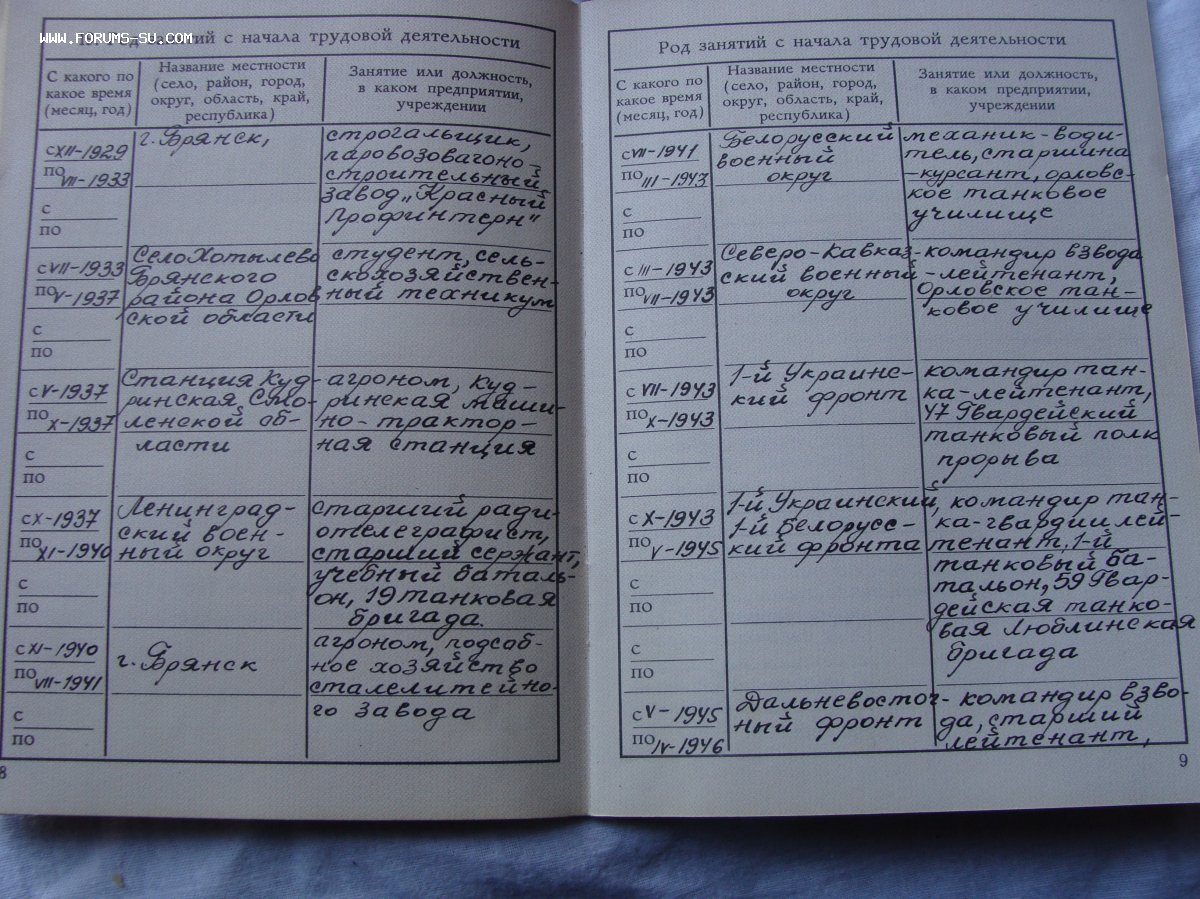 www.forums-su.com
Род занятий с начала трудовой деятельности
С какого по
какое время
(месяц, год)
Название местности
(село, район, город,
округ, область, край,
республика)
Занятие или должность,
в каком предприятии,
учреждении
с XII-1929
по VII-1933
г. Брянск,
строгальщик,
паровозовагоно-
строительный
завод „Красный
Профинтерн"
с
по
с VII-1933
по V-1937
Село Хотылево
Брянского
района Орлов
ской области
студент, сель-
скохозяйствен-
ный техникум
с
по
с V-1937
по X-1937
Станция Куд-
ринская Смо-
ленской об-
ласти
агроном, Куд-
ринская маши-
но-трактор-
ная станция
с
по
с X-1937
по XI-1940
Ленинград-
ский воен-
ный округ
старший ради-
отелеграфист,
старший сержант,
учебный баталь-
он, 19 танковая
бригада.
с
по
с XI-1940
по VII-1941
г. Брянск
агроном, подсоб-
ное хозяйство
сталелитейно-
го завода
с
по
8
Род занятий с начала трудовой деятельности
С какого по
какое время
(месяц, год)
Название местности
(село, район, город,
округ, область, край,
республика)
Занятие или должность,
в каком предприятии,
учреждении
с VII-1941
по III-1943
Белорусский
военный
округ
механик-води-
тель, старшина
-курсант, орловс-
кое танковое
училище
с
по
с III-1943
по VII-1943
Северо-Кавказ-
ский военный
округ
командир взвода
-лейтенант,
Орловское тан-
ковое училище
с
по
с VII-1943
по X-1943
1-й Украинс-
кий фронт
командир тан-
ка-лейтенант,
47 Гвардейский
танковый полк
прорыва
с
по
с X-1943
по V-1945
1-й Украинский,
1-й Белорусс-
кий фронта
командир тан-
ка-гвардии лей-
тенант, 1-й
танковый ба-
тальон, 59 Гвар-
дейская танко-
вая Люблинская
бригада
с
по
с
по
с V-1945
по IV-1946
Дальневосточ-
ный фронт
командир взво-
да, старший
лейтенант,
9